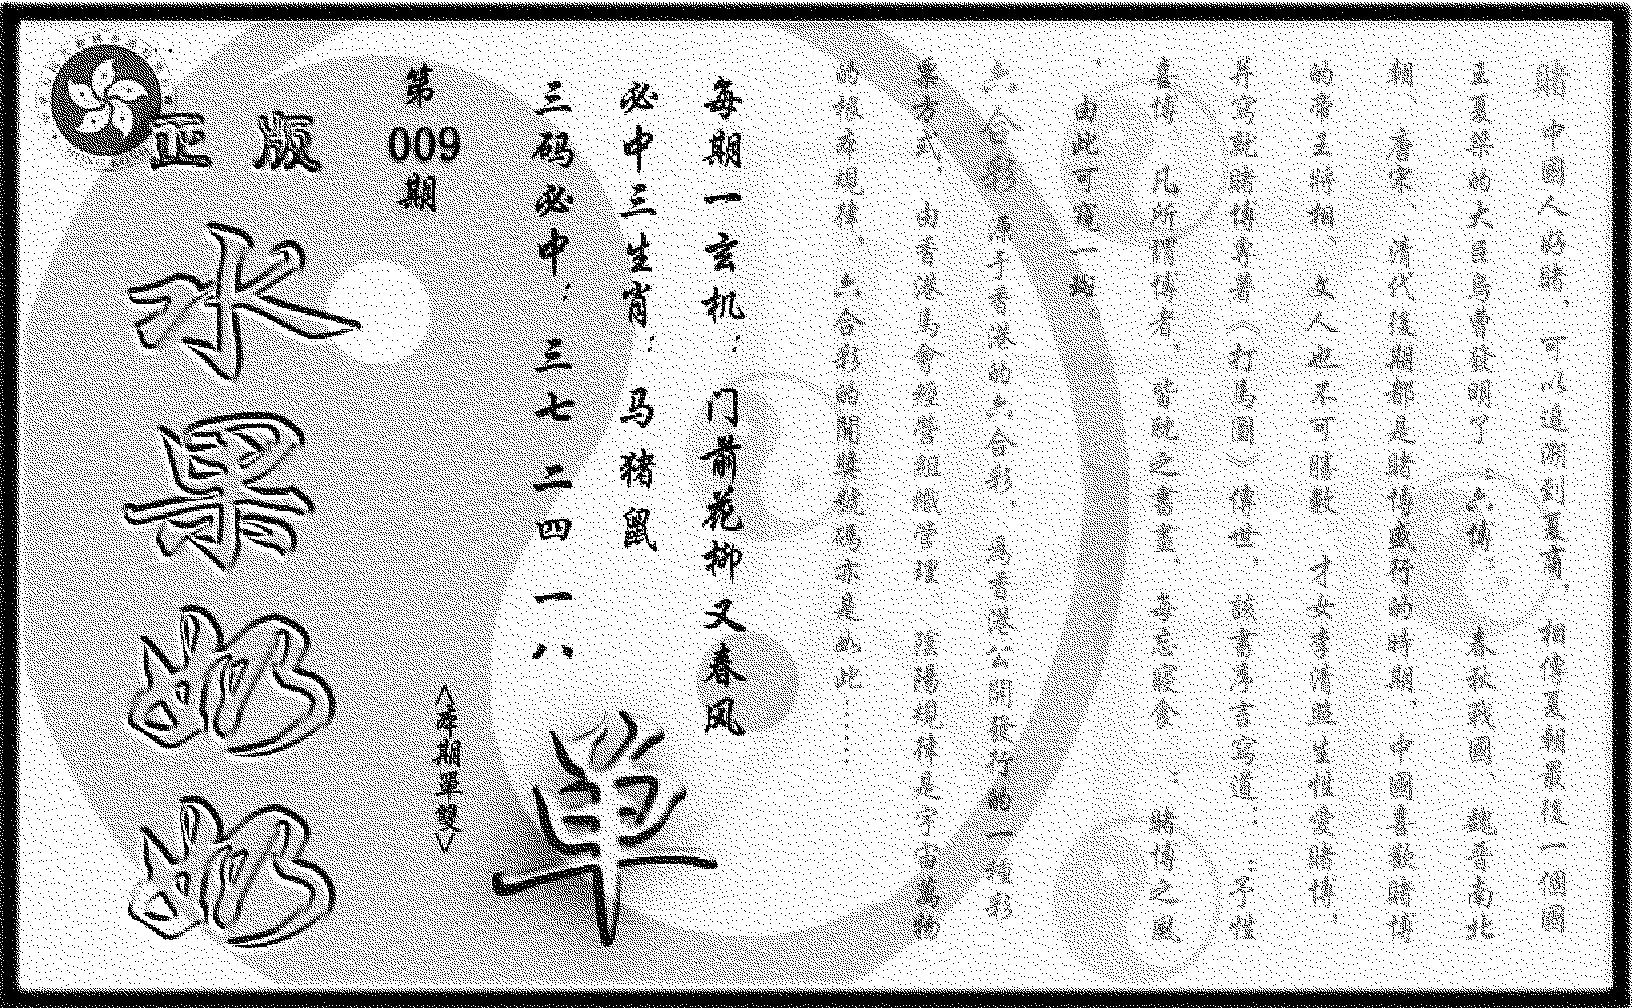 賭 中國人好賭，可以追溯到夏商。相傳夏朝最後一個國
王夏桀的大臣烏曹發明了“六博”。春秋戰國、魏晉南北
朝、唐宋、清代後期都是賭博盛行的時期。中國喜歡賭博
的帝王將相、文人也不可勝數。才女李清照生性愛賭博，
并寫就賭博專著《打馬圖》傳世。該書序言寫道：：予性
喜博，凡所謂博者，皆耽之晝夜，每忘寢食：賭博之風
，由此可窺一斑
六合彩，源于香港的六合彩，為香港公開發行的一種彩
票方式，由香港馬會經營組織管理。陰陽規律是宇宙萬物
的根本規律，六合彩的開獎號碼亦是如此……
每期一玄机：门前花柳又春风
必中三生肖：马猪鼠
三码必中：三七 二四 一八
单
第009期
期單雙
正版
水果奶奶